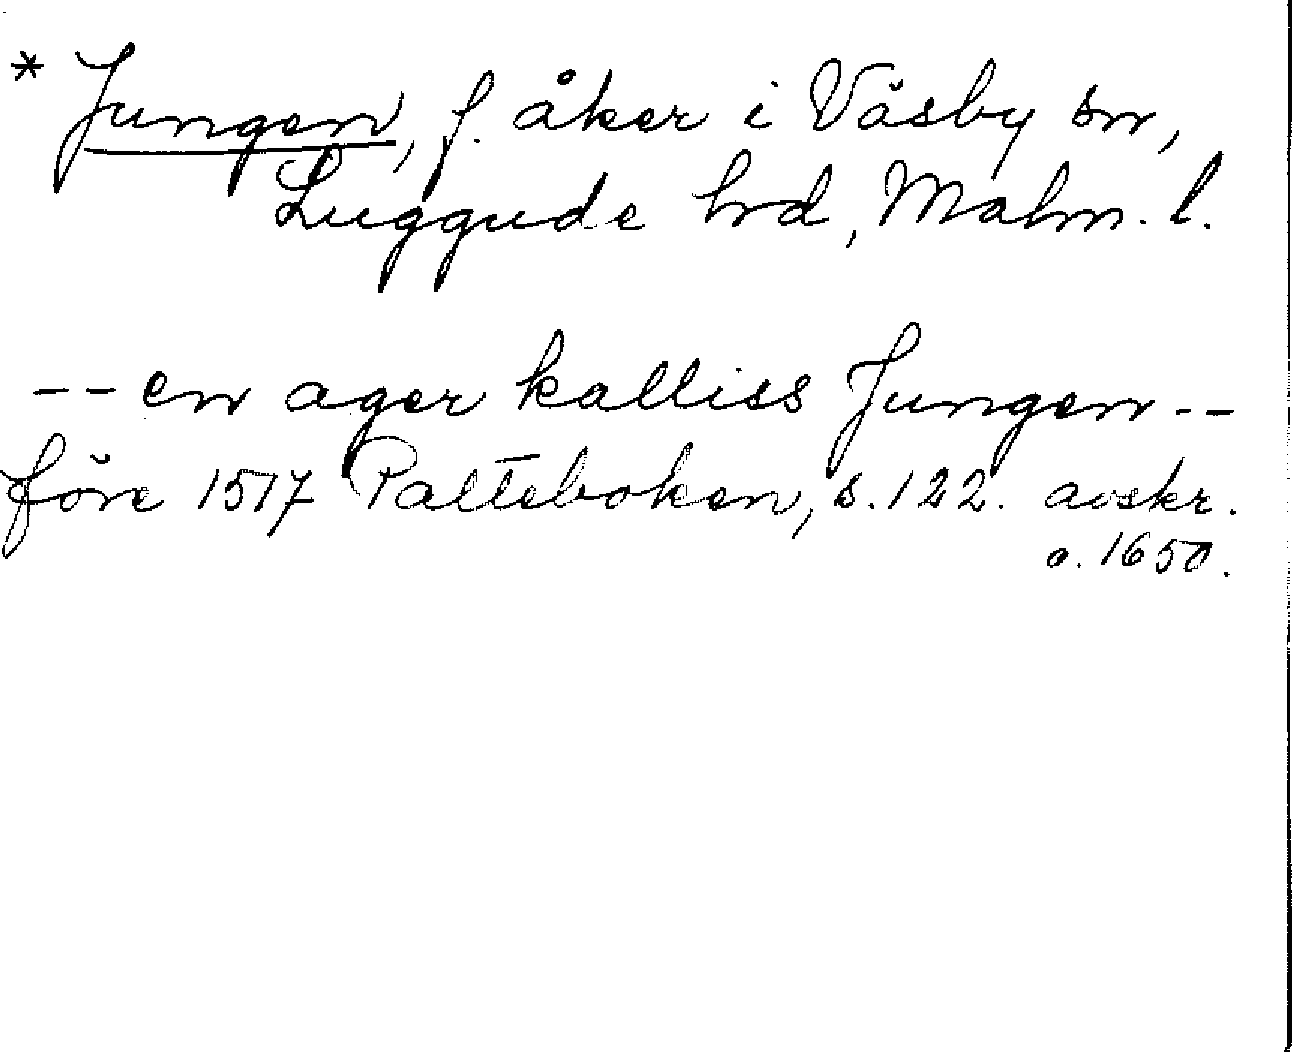 * Jungen, f. åker i Väsby sn,
Luggude hrd, Malm. l.
-- en ager kalliss Jungen --
före 1517 Palteboken, s. 122. avskr.
o. 1650.